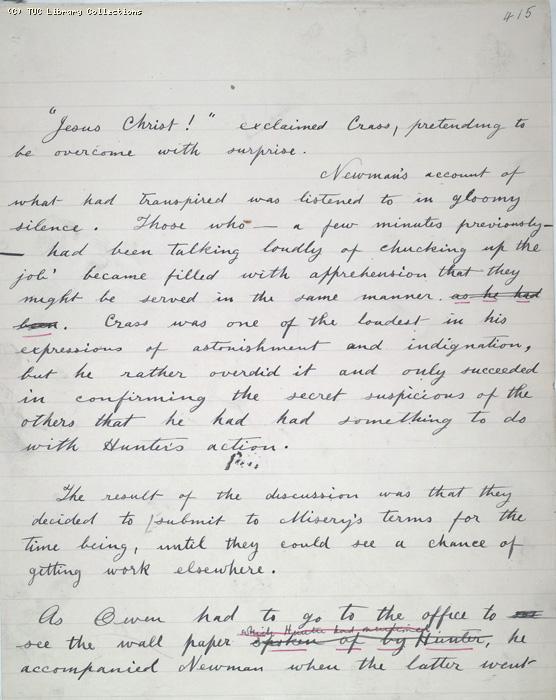 (C) TUC Library Collections
415
"Jesus Christ!" exclaimed Crass, pretending to
be overcome with surprise.
Newman's account of
what had transpired was listened to in gloomy
silence. Those who — a few minutes previously —
— had been talking loudly of chucking up the
job' became filled with apprehension that they
might be served in the same manner. as he had
been. Crass was one of the loudest in his
expressions of astonishment and indignation,
but he rather overdid it and only succeeded
in confirming the secret suspicious of the
others that he had had something to do
with Hunter's action.
The result of the discussion was that they
decided to submit to Misery's terms for the
time being, until they could see a chance of
getting work elsewhere.
As Owen had to go to the office to
which Hunter had mentioned
see the wall paper spoken of by Hunter, he
accompanied Newman when the latter went